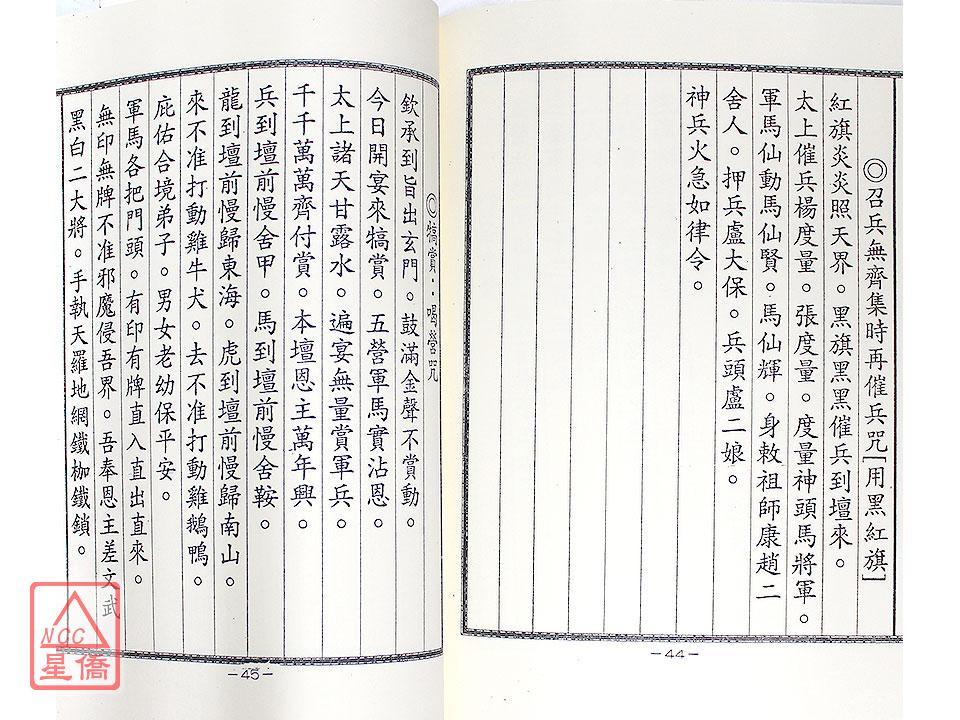 ◎召兵無齊集時再催兵咒[用黑紅旗]
紅旗炎炎照天界。黑旗黑黑催兵到壇來。
太上催兵楊度量。張度量。度量神頭馬將軍。
軍馬仙動馬仙賢。馬仙輝。身敕祖師康趙二
舍人。押兵盧大保。兵頭盧二娘。
神兵火急如律令。
-44-
◎犒賞：喝營咒
欽承到旨出玄門。鼓滿金聲不賞動。
今日開宴來犒賞。五營軍馬實沾恩。
太上諸天甘露水。遍宴無量賞軍兵。
千千萬萬齊付賞。本壇恩主萬年興。
兵到壇前慢舍甲。馬到壇前慢舍鞍。
龍到壇前慢歸東海。虎到壇前慢歸南山。
來不准打動雞牛犬。去不准打動雞鵝鴨。
庇佑合境弟子。男女老幼保平安。
軍馬各把門頭。有印有牌直入直出直來。
無印無牌不准邪魔侵吾界。吾奉恩主差文武
黑白二大將。手執天羅地網鐵枷鐵鎖。
-45-
NCC
星僑